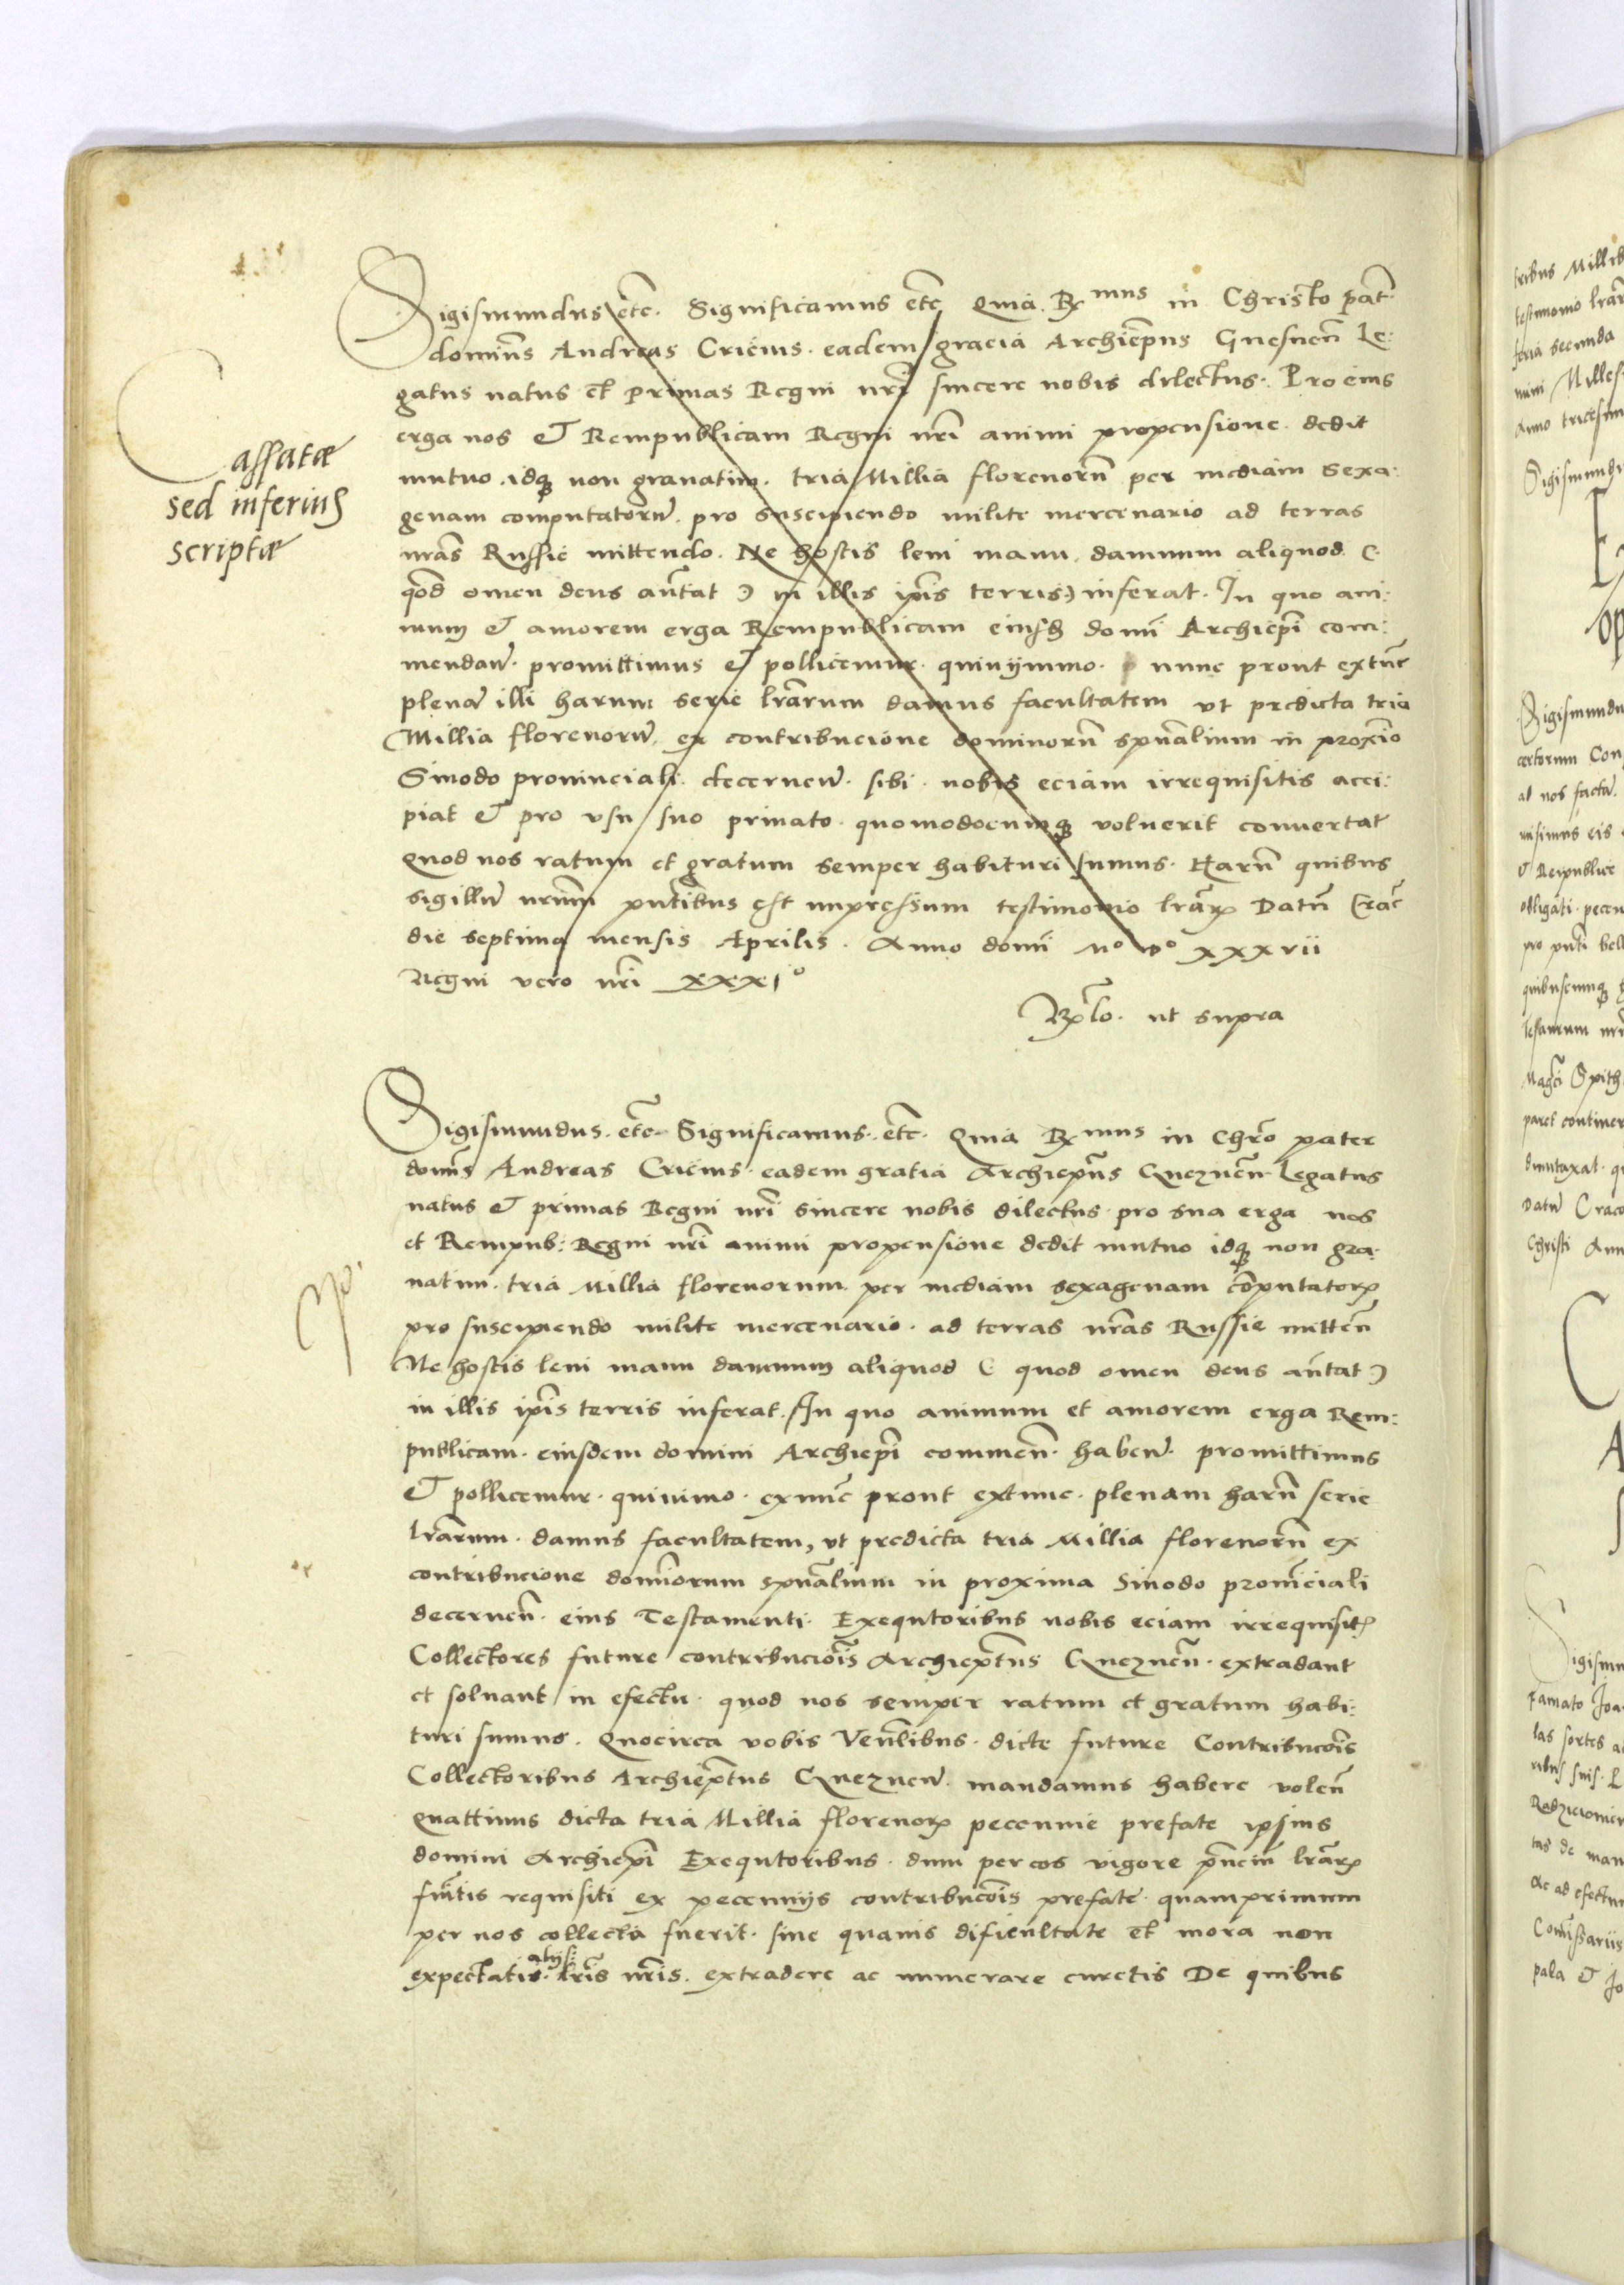 Cassatae
sed inferius
scriptae
Sigismundus etc. Significamus etc Quia Rmus in Christo pat
dominus Andreas Cricius. eadem gracia Archiepus Gnesnen Le:
gatus natus et primas Regni nri sincere nobis dilectus. Pro eius
erga nos et Rempublicam Regni nri animi propensione. dedit
mutuo idq non granatim. tria Millia florenoru per mediam sexa:
genam computatoru. pro suscipiendo milite mercenario ad terras
nras Russie mittendo. Ne hostis leni manu damnum aliquod (
qod omen deus autat) in illis ipis terris) inferat. In quo ani:
mum et amorem erga Rempublicam eiusd domi Archiepi com:
mendan. promittimus et pollicemur. quinymmo. nunc prout extunc
plena illi harum serie lrarum damus facultatem ut predicta tria
Millia florenoru. ex contribucione dominoru spualium in proxio
Sinodo prouinciali. decernen. sibi. nobis eciam irrequisitis acci:
piat et pro usu suo priuato quomodocumq voluerit conuertat
Quod nos ratum et gratum semper habituri sumus. Haru quibus
sigillu nrum pntibus est impressum testimonio lrar Datu Crac
die septima mensis Aprilis. Anno domi Mo Do xxxvii
Regni vero nri xxxio
Rlo. ut supra
Sigismundus. etc. Significamus. etc. Quia Rmus in Chro pater
doms Andreas Cricius. eadem gratia Archiepus Gneznen. Legatus
natus et primas Regni nri sincere nobis dilectus pro sua erga nos
et Rempub: Regni nri animi propensione dedit mutuo idq non gra:
natim. tria Millia florenorum per mediam sexagenam computator
pro suscipiendo milite mercenario. ad terras nras Russie mitten
Ne hostis leni manu damnum aliquod ( quod omen deus autat )
in illis ipis terris inferat. In quo animum et amorem erga Rem:
publicam. eiusdem domini Archiepi commen. haben. promittimus
et pollicemur. quinimo. exnunc prout extunc. plenam haru serie
lrarum. damus facultatem, ut predicta tria Millia florenoru ex
contribucione dominorum spualium in proxima Sinodo prouinciali
decernen. eius Testamenti. Exequtoribus nobis eciam irrequisit
Collectores future contribuciois Archieptus Gneznen. extradant
et soluant in efectu. quod nos semper ratum et gratum habi:
turi sumus. Quocirca vobis Venlibus. dicte future Contribucois
Collectoribus Archieptus Gneznen. mandamus habere volen
Quattinus dicta tria Millia florenor pecunnie prefate ipsius
domini Archiepi Exequtoribus. dum per eos vigore pncium lrar
fuitis requisiti ex pecunnijs contribucois prefate. quamprimum
per nos collecta fuerit. sine quauis dificultate et mora non
expectatis. alijs lris nris. extradere ac numerare curetis De quibus